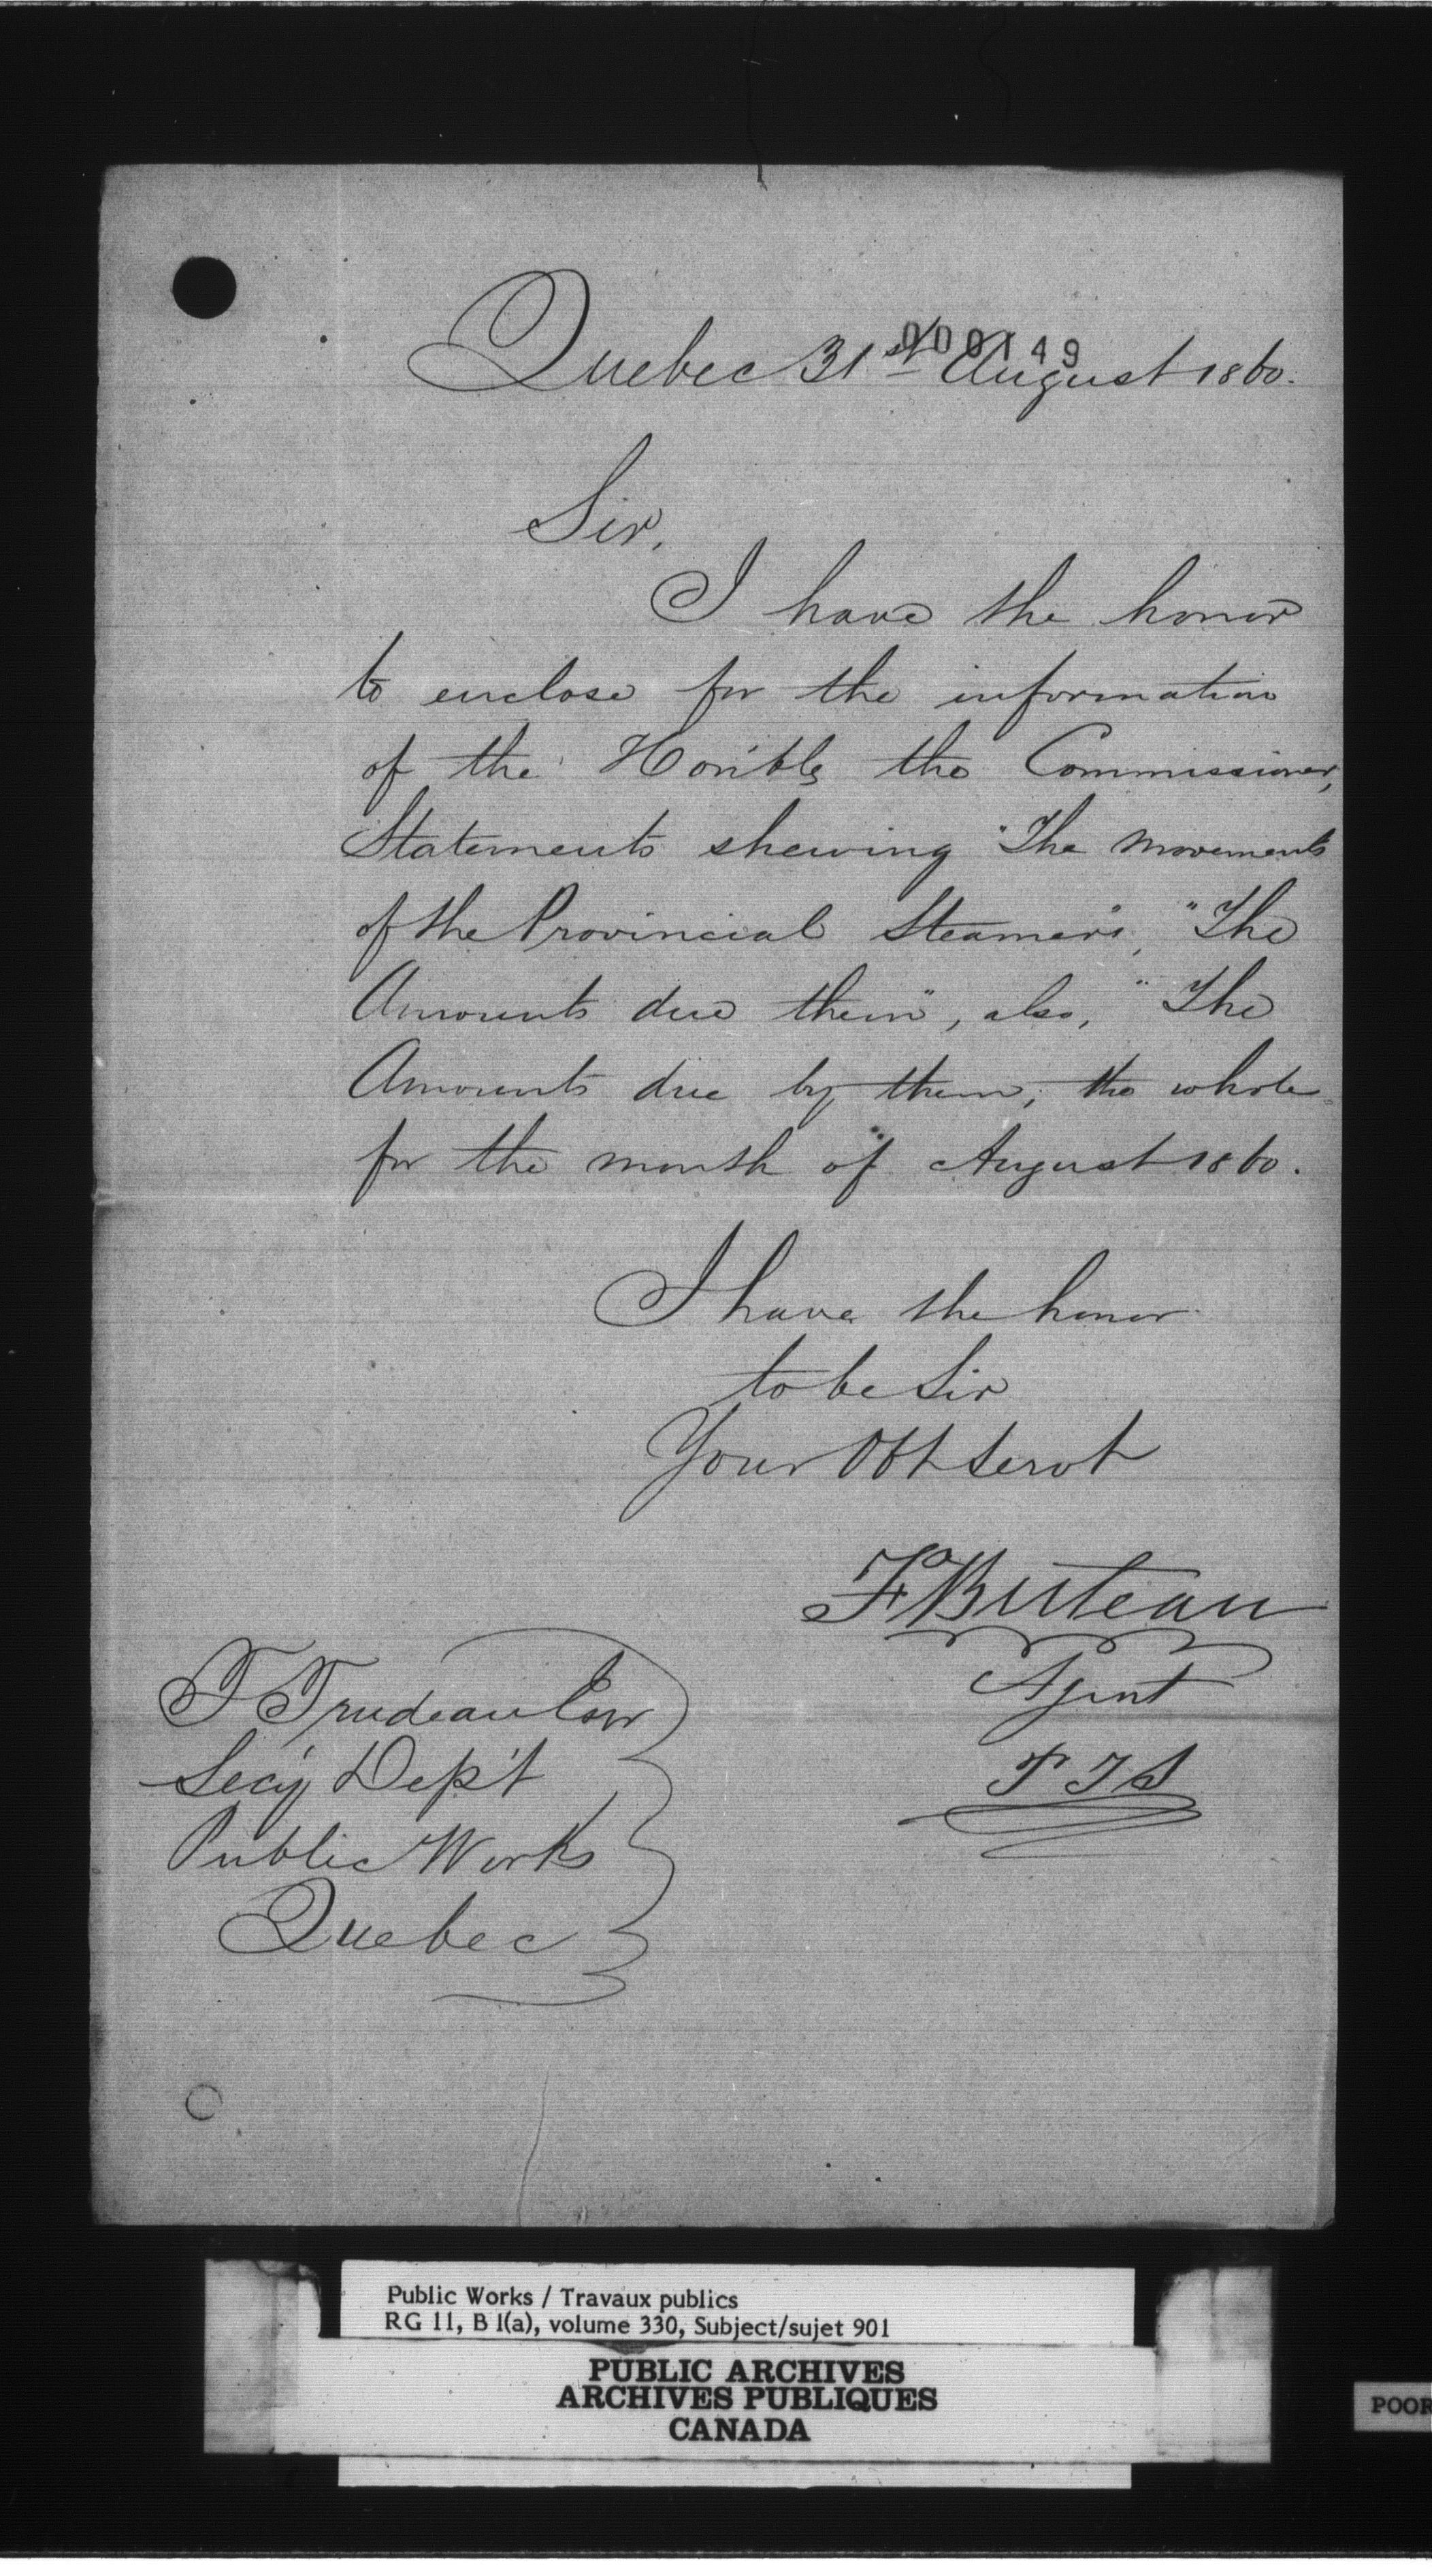 000149
Quebec 31st August 1860.
Sir,
I have the honor
to enclose for the information
of the Hon'ble the Commissioner,
Statements shewing "The movements
of the Provincial Steamers", "The
Amounts due them", also, "The
Amounts due by them; the whole
for the month of August 1860.
I have the honor
to be Sir
Your Obt Servt
F Buteau
Agent
P T S
T Trudeau Esqr
Sec'y Dep't
Public Works
Quebec
Public Works / Travaux publics
RG 11, B I(a), volume 330, Subject/sujet 901
PUBLIC ARCHIVES
ARCHIVES PUBLIQUES
CANADA
POOR